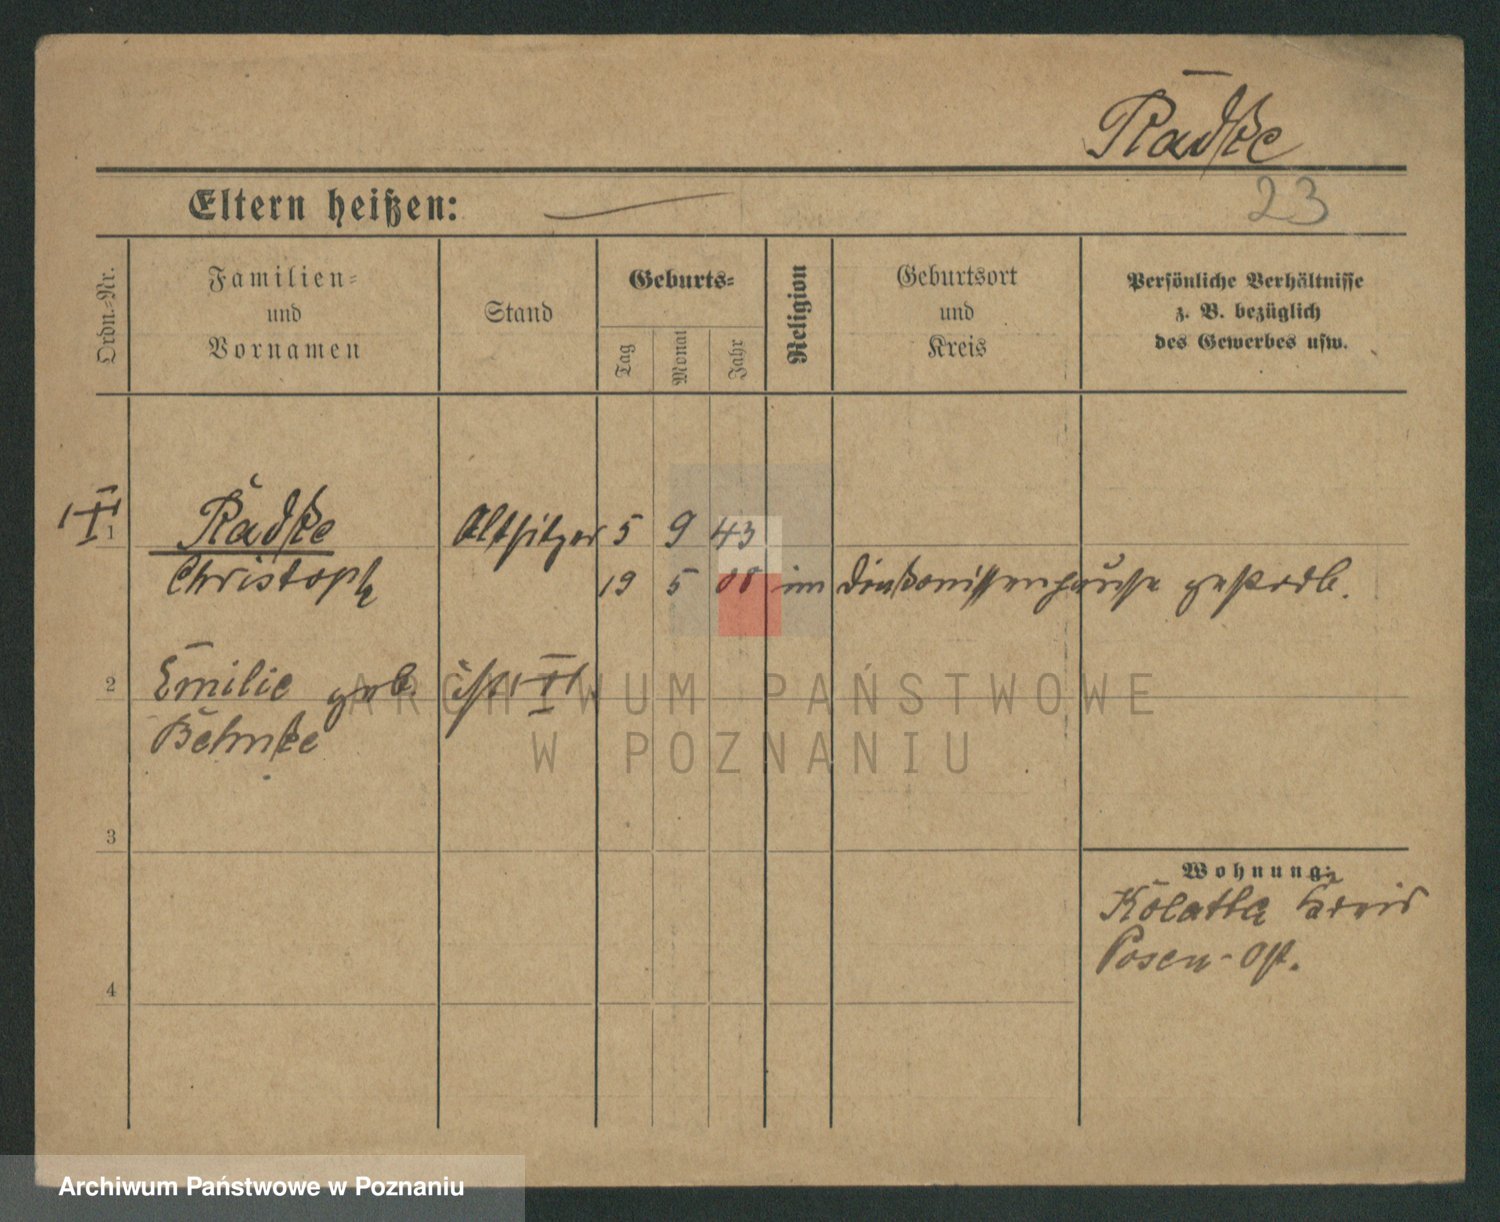 Radke
23
Eltern heißen:
Ordn.-Nr.
Familien-
und
Vornamen
Stand
Geburts-
Tag
Monat
Jahr
Religion
Geburtsort
und
Kreis
Persönliche Verhältnisse
z. B. bezüglich
des Gewerbes usw.
1
Radke Altsitzer 5 9 43
Christoph 19 5 08 im Diakonissenhause gestorb.
2
Emilie geb. ist
Behnke
3
4
Wohnung:
Kolatka Kreis
Posen-Ost.
ARCHIWUM PAŃSTWOWE
W POZNANIU
Archiwum Państwowe w Poznaniu